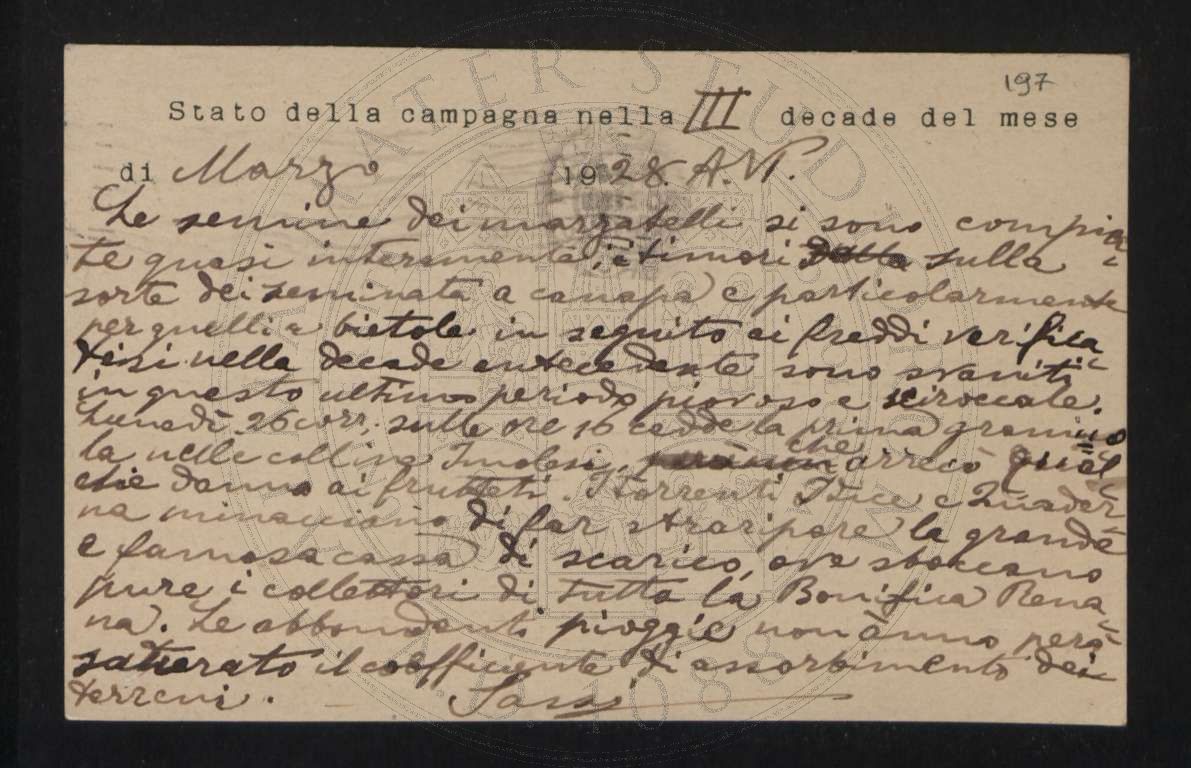 197
Stato della campagna nella III decade del mese
di Marzo 1928. A. VI.
Le semine dei marzatelli si sono compiu-
te quasi interamente; i timori dalla sulla
sorte dei seminati a canapa e particolarmente
per quelli a bietole in seguito ai freddi verifica-
tisi nella decade antecedente sono svaniti
in questo ultimo periodo piovoso e sciroccale.
Lunedì 26 corr. sulle ore 16 cadde la prima gramuo-
la nelle collina Imolesi, che arrecò qual-
che danno ai frutteti. I torrenti Idice e Quader-
na minacciano di far straripare la grande
e famosa cassa di scarico, ove sboccano
pure i collettori di tutta la Bonifica Rena-
na. Le abbondanti pioggie non ànno però
saturato il coefficiente di assorbimento dei
terreni. Sassi